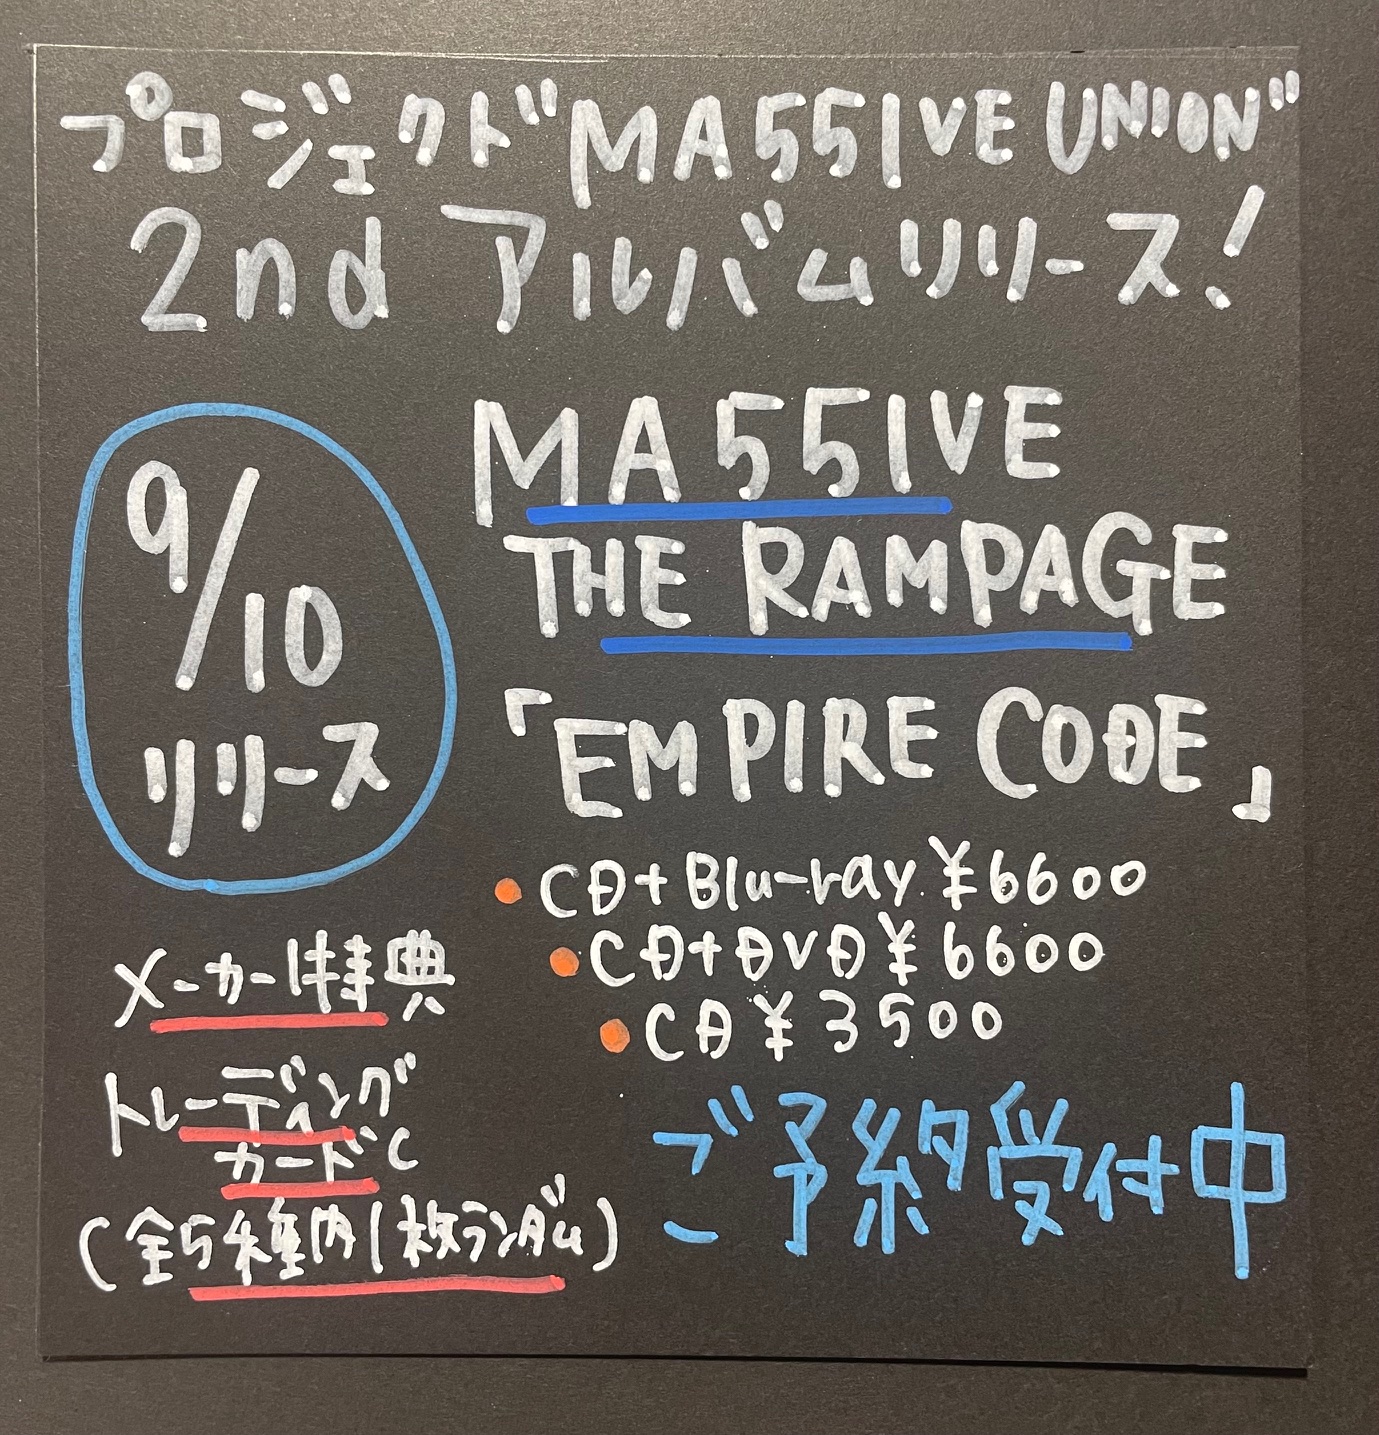 プロジェクト"MA55IVE UNION"
2nd アルバムリリース!
9/10
リリース
MA55IVE
THE RAMPAGE
「EMPIRE CODE」
CD+Blu-ray ¥6600
CD+DVD ¥6600
CD ¥3500
メーカー特典
トレーディング
カードC
(全5種内1枚ランダム)
ご予約受付中